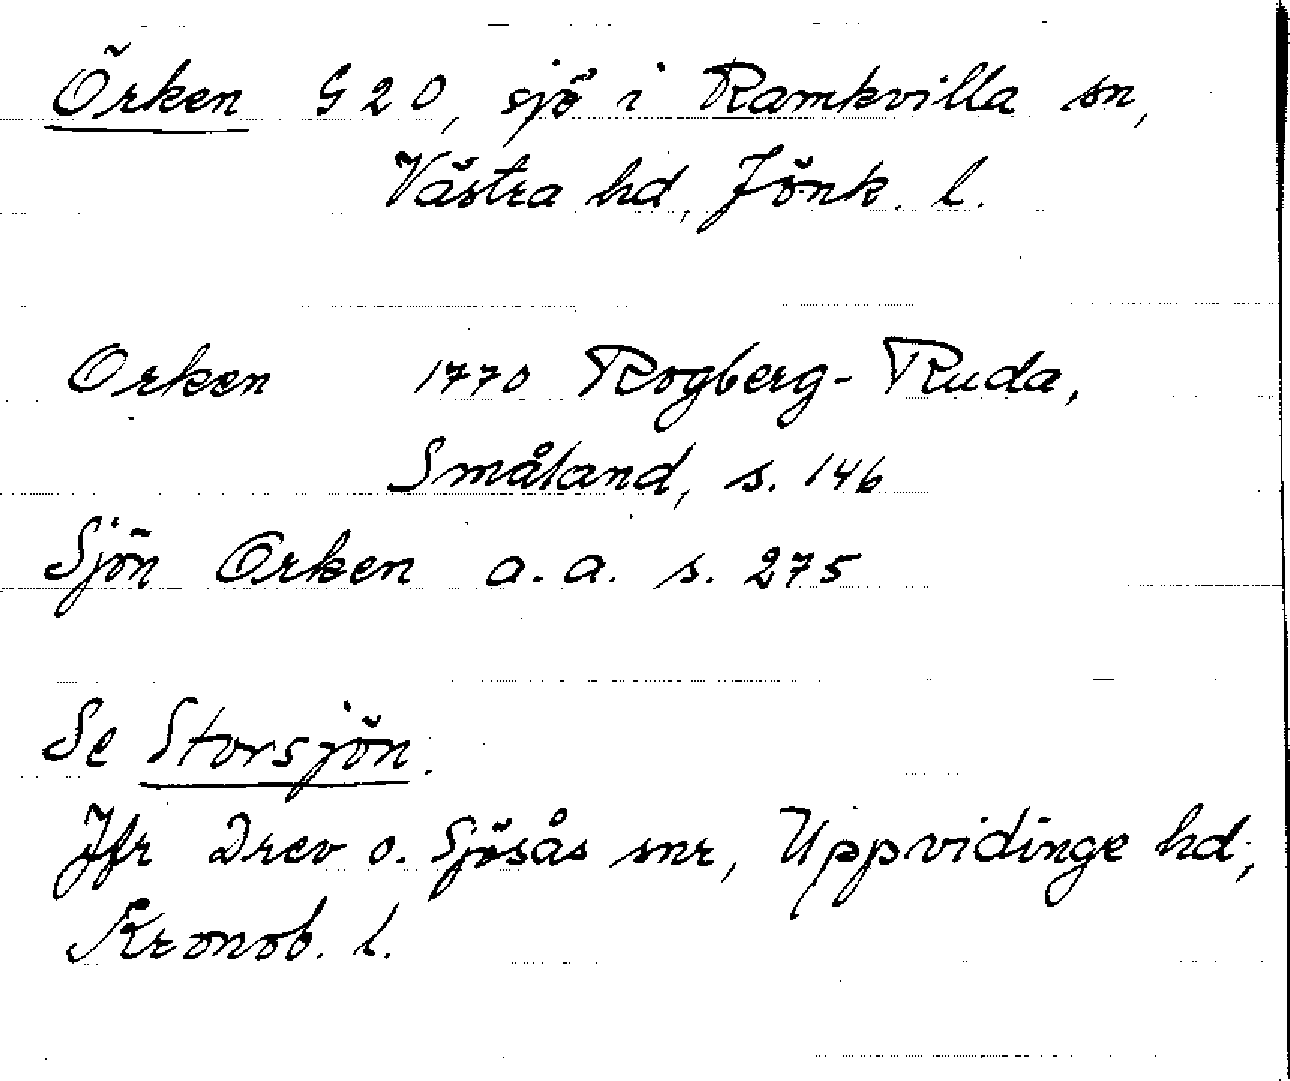 Örken G20, sjö i Ramkvilla sn,
Västra hd, Jönk. l.
Orken 1770 Rogberg-Ruda,
Småland, s. 146
Sjön Orken a.a. s. 275
Se Storsjön.
Jfr Drev o. Sjösås snr, Uppvidinge hd,
Kronob. l.